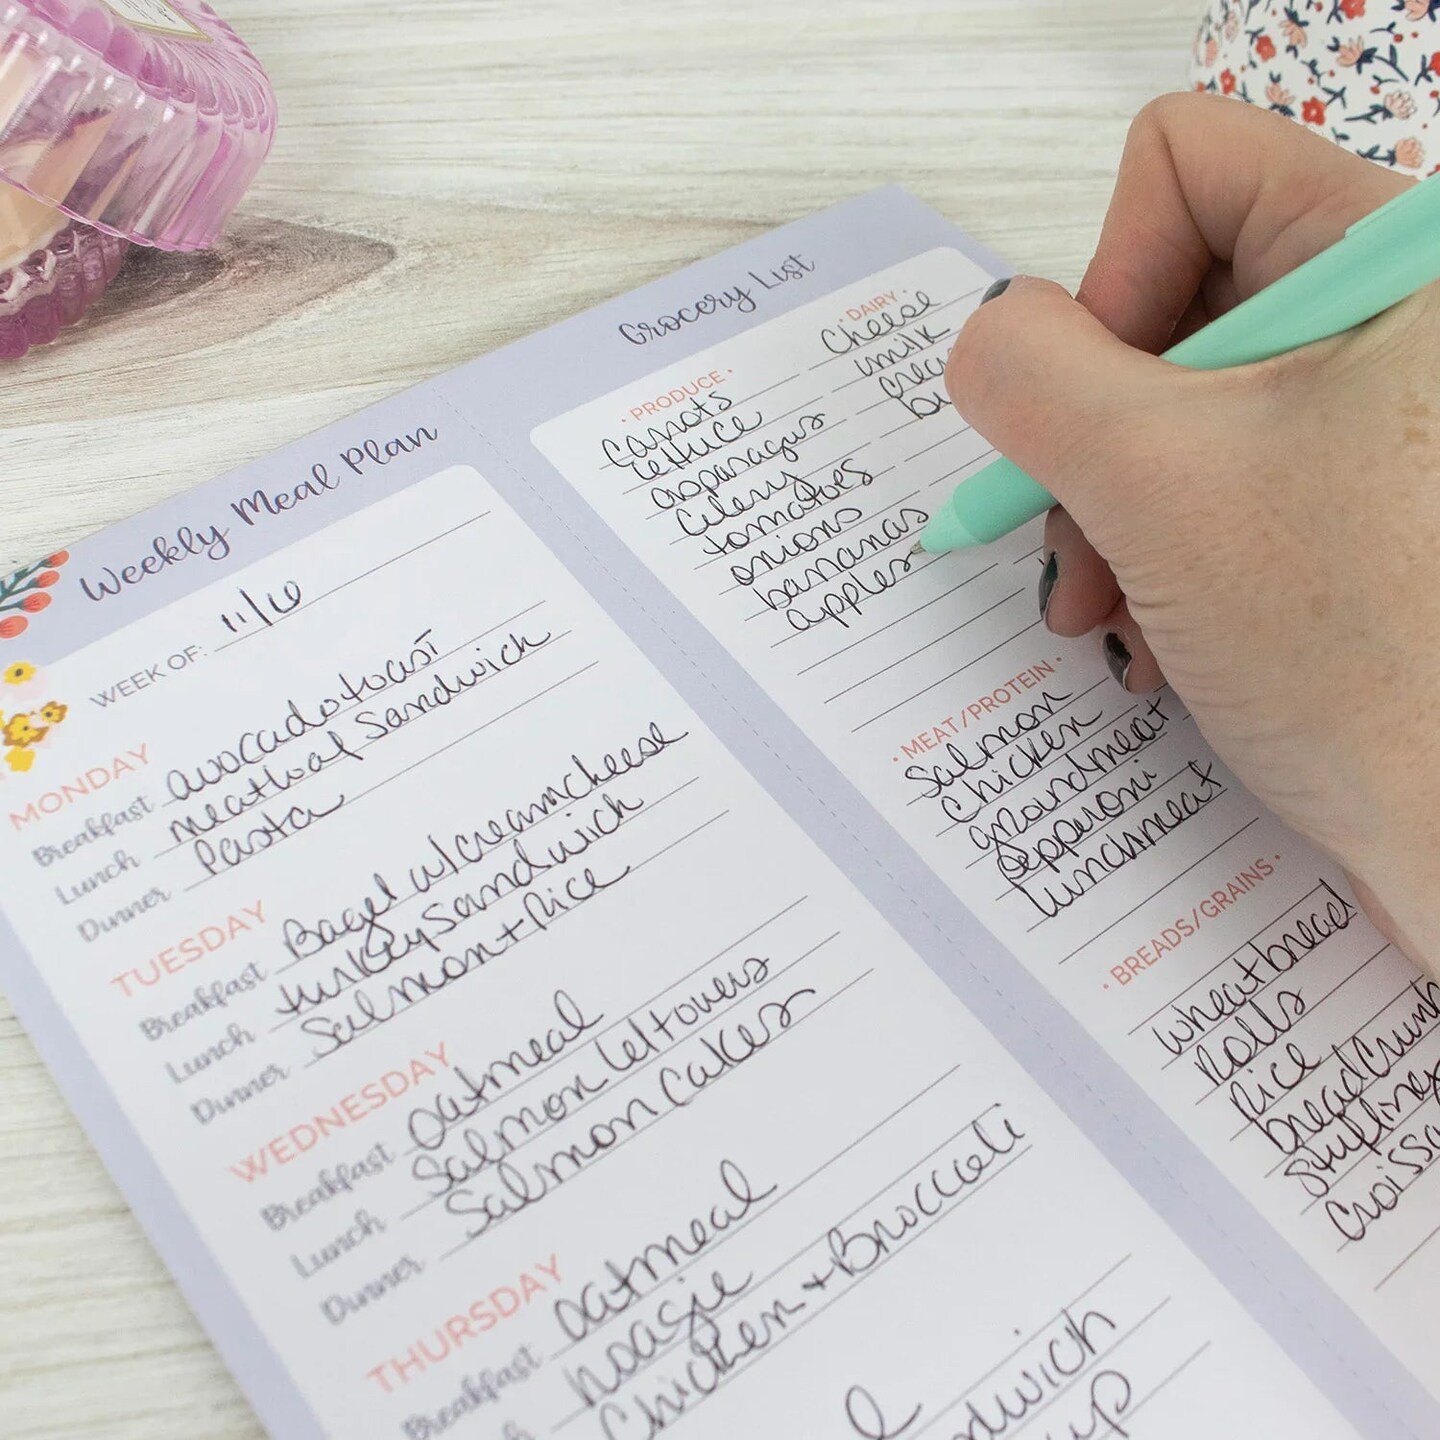 Weekly Meal Plan
WEEK OF: 11/10
MONDAY
Breakfast avocado toast
Lunch meatloaf Sandwich
Dinner Pasta
TUESDAY
Breakfast Bagel w/creamcheese
Lunch turkey Sandwich
Dinner Salmon + Rice
WEDNESDAY
Breakfast Oatmeal
Lunch Salmon leftovers
Dinner Salmon Cakes
THURSDAY
Breakfast Oatmeal
hoagie
Chicken + Broccoli
Grocery List
• PRODUCE •
carrots
lettuce
asparagus
Celery
tomatoes
onions
bananas
apples
• DAIRY •
Cheese
milk
• MEAT/PROTEIN •
Salmon
Chicken
groundmeat
pepperoni
lunchmeat
• BREADS/GRAINS •
wheat bread
Rolls
Rice